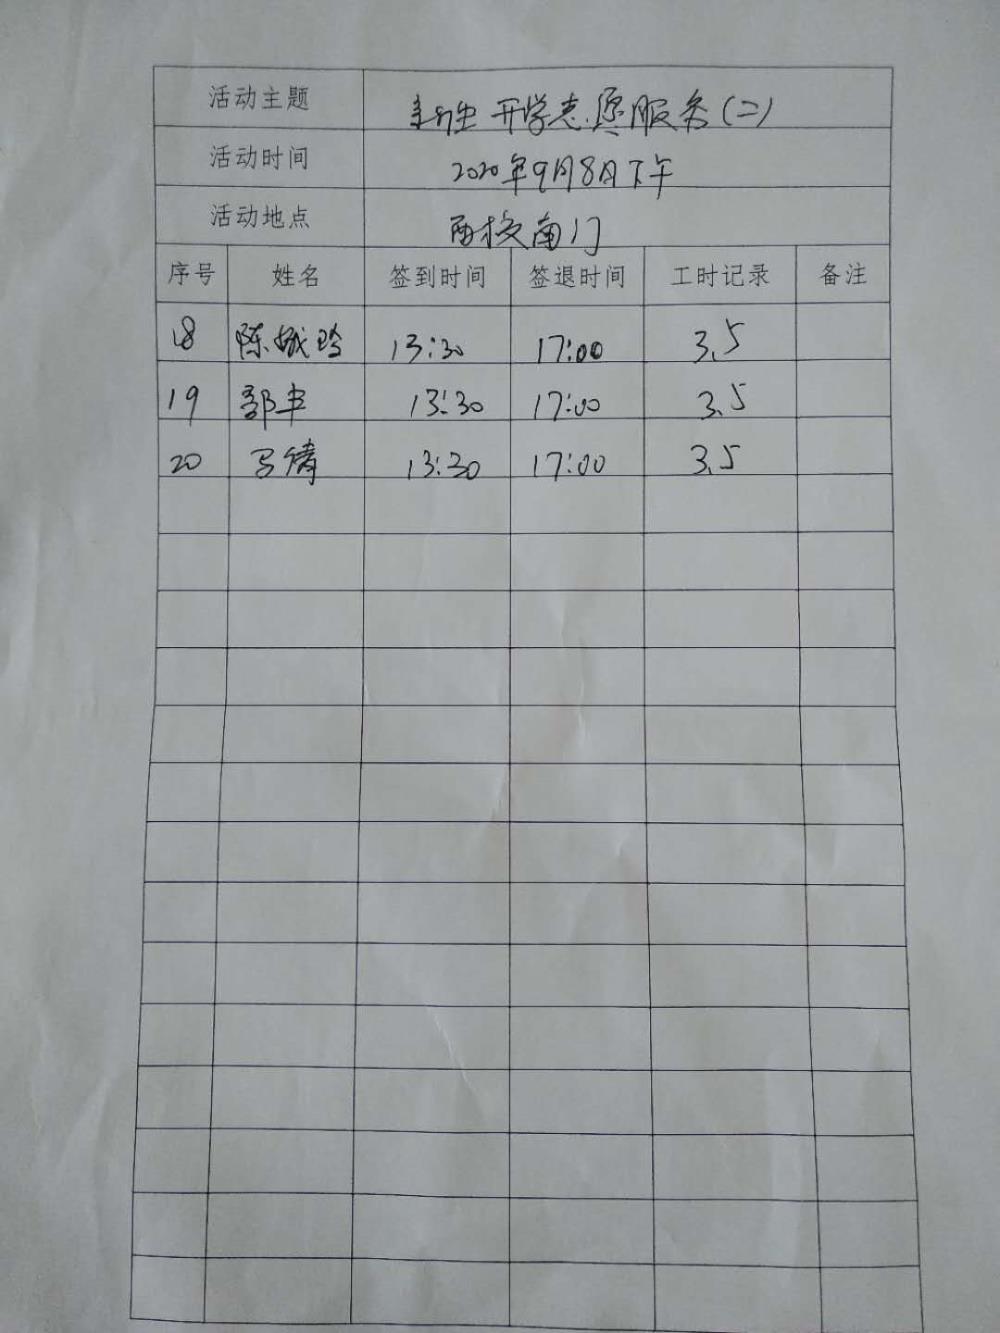 活动主题 新生开学志愿服务(二)
活动时间 2020年9月8日下午
活动地点 西校南门
序号 姓名 签到时间 签退时间 工时记录 备注
18 陈 玲 13:30 17:00 3.5
19 13:30 17:00 3.5
20 马倩 13:30 17:00 3.5